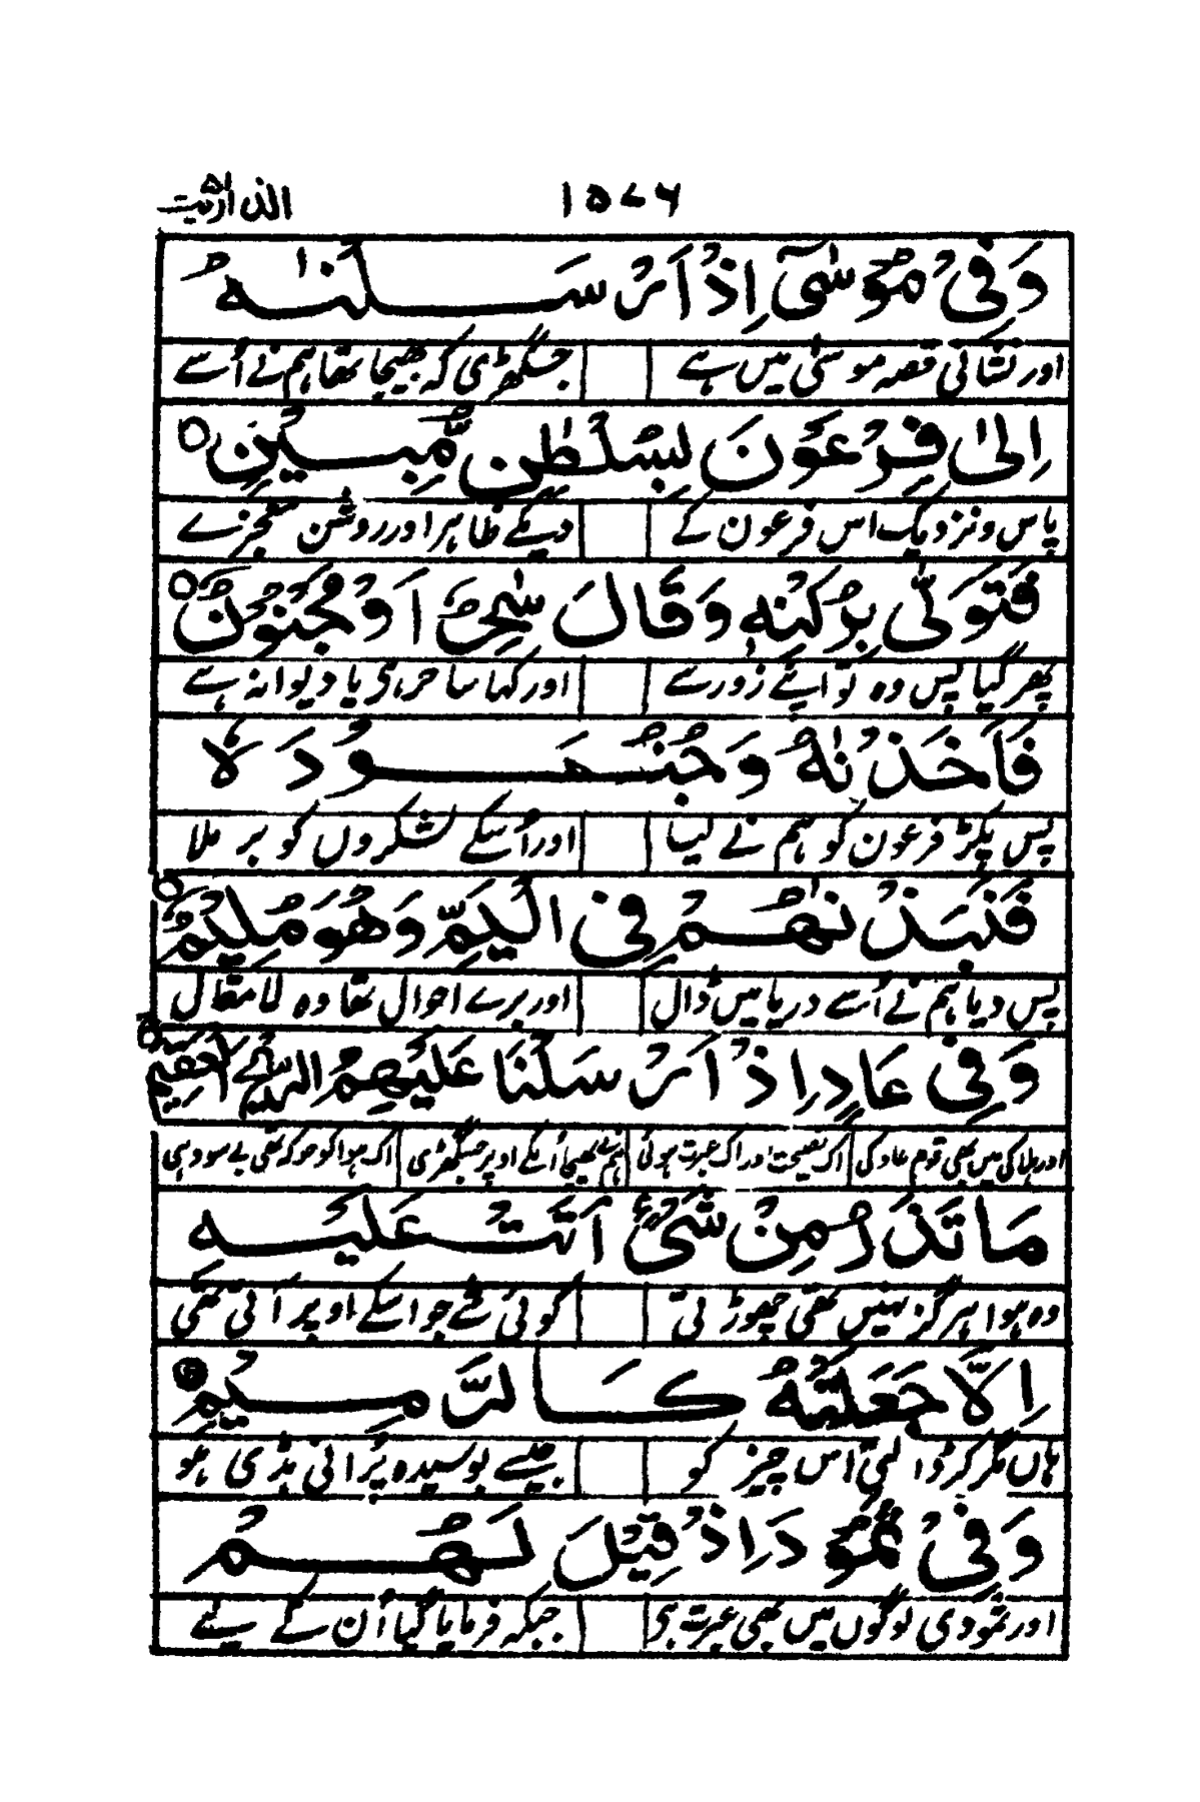 الذاریت ۵۱ ۱۵۷۶
وَفِیْ مُوْسٰۤی اِذْ اَرْسَلْنٰهُ
اور نشانی قصہ موسیٰ میں ہے جس گھڑی کہ بھیجا تھا ہم نے اُسے
اِلٰی فِرْعَوْنَ بِسُلْطٰنٍ مُّبِیْنٍ ○
پاس و نزدیک اس فرعون کے دیکے ظاہر اور روشن معجزے
فَتَوَلّٰی بِرُكْنِهٖ وَقَالَ سٰحِرٌ اَوْ مَجْنُوْنٌ ○
پھر گیا پس وہ تو اپنے زور سے اور کہا ساحر ہی یا دیوانہ ہے
فَاَخَذْنٰهُ وَجُنُوْدَهٗ
پس پکڑ فرعون کو ہم نے لیا اور اُسکے لشکروں کو بر ملا
فَنَبَذْنٰهُمْ فِی الْیَمِّ وَهُوَ مُلِیْمٌ ○
پس دیا ہم نے اُسے دریا میں ڈال اور برے احوال تھا وہ لا مقال
وَفِیْ عَادٍ اِذْ اَرْسَلْنَا عَلَیْهِمُ الرِّیْحَ الْعَقِیْمَ ○
اور ہلاکی میں بھی قوم عاد کی اک نصیحت اور اک عبرت ہوئی ہم نے بھیجا اُنکے اوپر جس گھڑی اک ہوا کو جو کہ تھی بے سود ہی
مَا تَذَرُ مِنْ شَیْءٍ اَتَتْ عَلَیْهِ
وہ ہوا ہرگز نہیں تھی چھوڑتی کوئی شے جو اسکے اوپر آتی تھی
اِلَّا جَعَلَتْهُ كَالرَّمِیْمِ ○
ہاں مگر کر ڈالتی اس چیز کو جیسے بوسیدہ پُرانی ہڈی ہو
وَفِیْ ثَمُوْدَ اِذْ قِیْلَ لَهُمْ
اور ثمودی لوگوں میں بھی عبرت ہی جبکہ فرمایا گیا اُن کے لیے